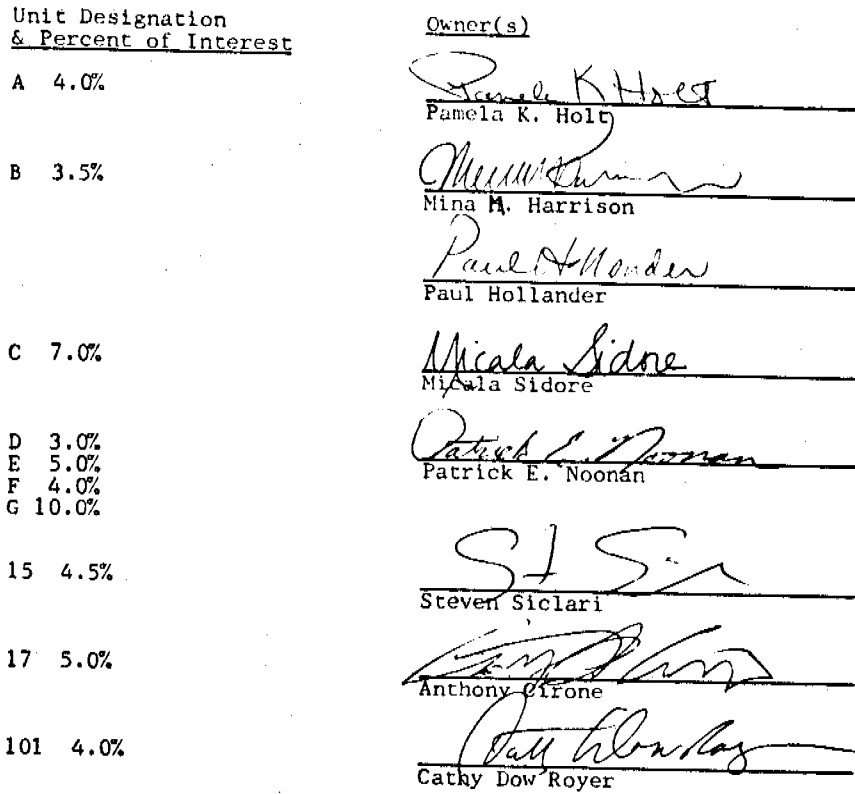 Unit Designation
& Percent of Interest
Owner(s)
A 4.0%
Pamela K Holt
Pamela K. Holt
B 3.5%
Mina M. Harrison
Paul Hollander
Paul Hollander
C 7.0%
Micala Sidore
Micala Sidore
D 3.0%
E 5.0%
F 4.0%
G 10.0%
Patrick E. Noonan
Patrick E. Noonan
15 4.5%
Steven Siclari
17 5.0%
Anthony Cirone
101 4.0%
Cathy Dow Royer